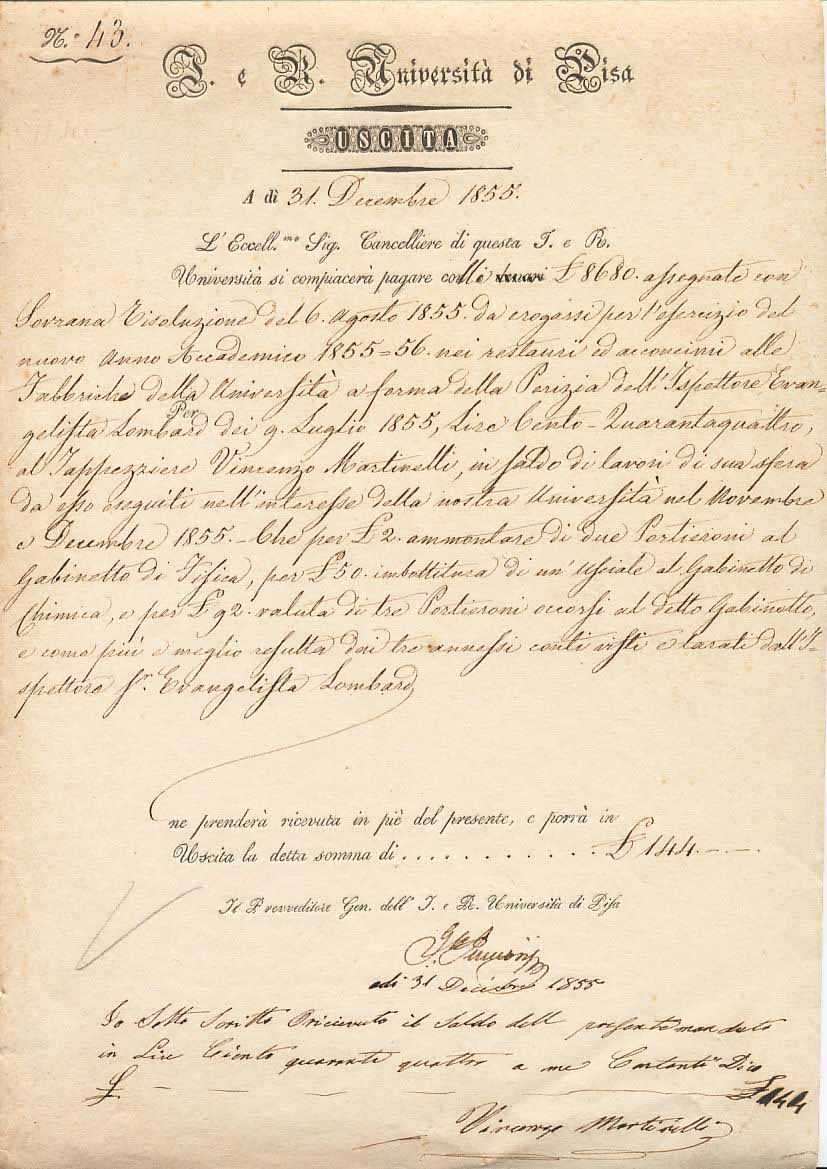 N.º 43.
I. e R. Università di Pisa
USCITA
A dì 31. Decembre 1855.
L'Eccell.mo Sig. Cancelliere di questa I. e R.
Università si compiacerà pagare colle £ 8680. assegnate con
Sovrana Risoluzione del 6. Agosto 1855. da erogarsi per l'esercizio del
nuovo Anno Accademico 1855=56. nei restauri ed acconcimi alle
Fabbriche della Università a forma della Perizia dell'Ispettore Evan-
gelista Lombard Per dei 9. Luglio 1855, Lire Cento-Quarantaquattro,
al Tappezziere Vincenzo Martinelli, in saldo di lavori di sua sfera
da esso eseguiti nell'interesse della nostra Università nel Novembre
e Decembre 1855.- Che per £ 2. ammontare di due Portieroni al
Gabinetto di Fisica, per £ 50. imbottitura di un'Usciale al Gabinetto di
Chimica, e per £ 92. valuta di tre Portieroni occorsi al detto Gabinetto,
e come più e meglio resulta dai tre annessi conti visti e tarati dall'I-
spettore Sr. Evangelista Lombard,
ne prenderà ricevuta in piè del presente, e porrà in
Uscita la detta somma di . . . . . . . . . . . . £ 144.--.
Il Provveditore Gen. dell' I. e R. Università di Pisa
adi 31 Decembre 1855
Io Sotto Scritto O ricevuto il Saldo dell presente mandato
in Lire Ciento quarante quattro a me Contanti Dico
£ - - - £ 144
Vincenzo Martinelli